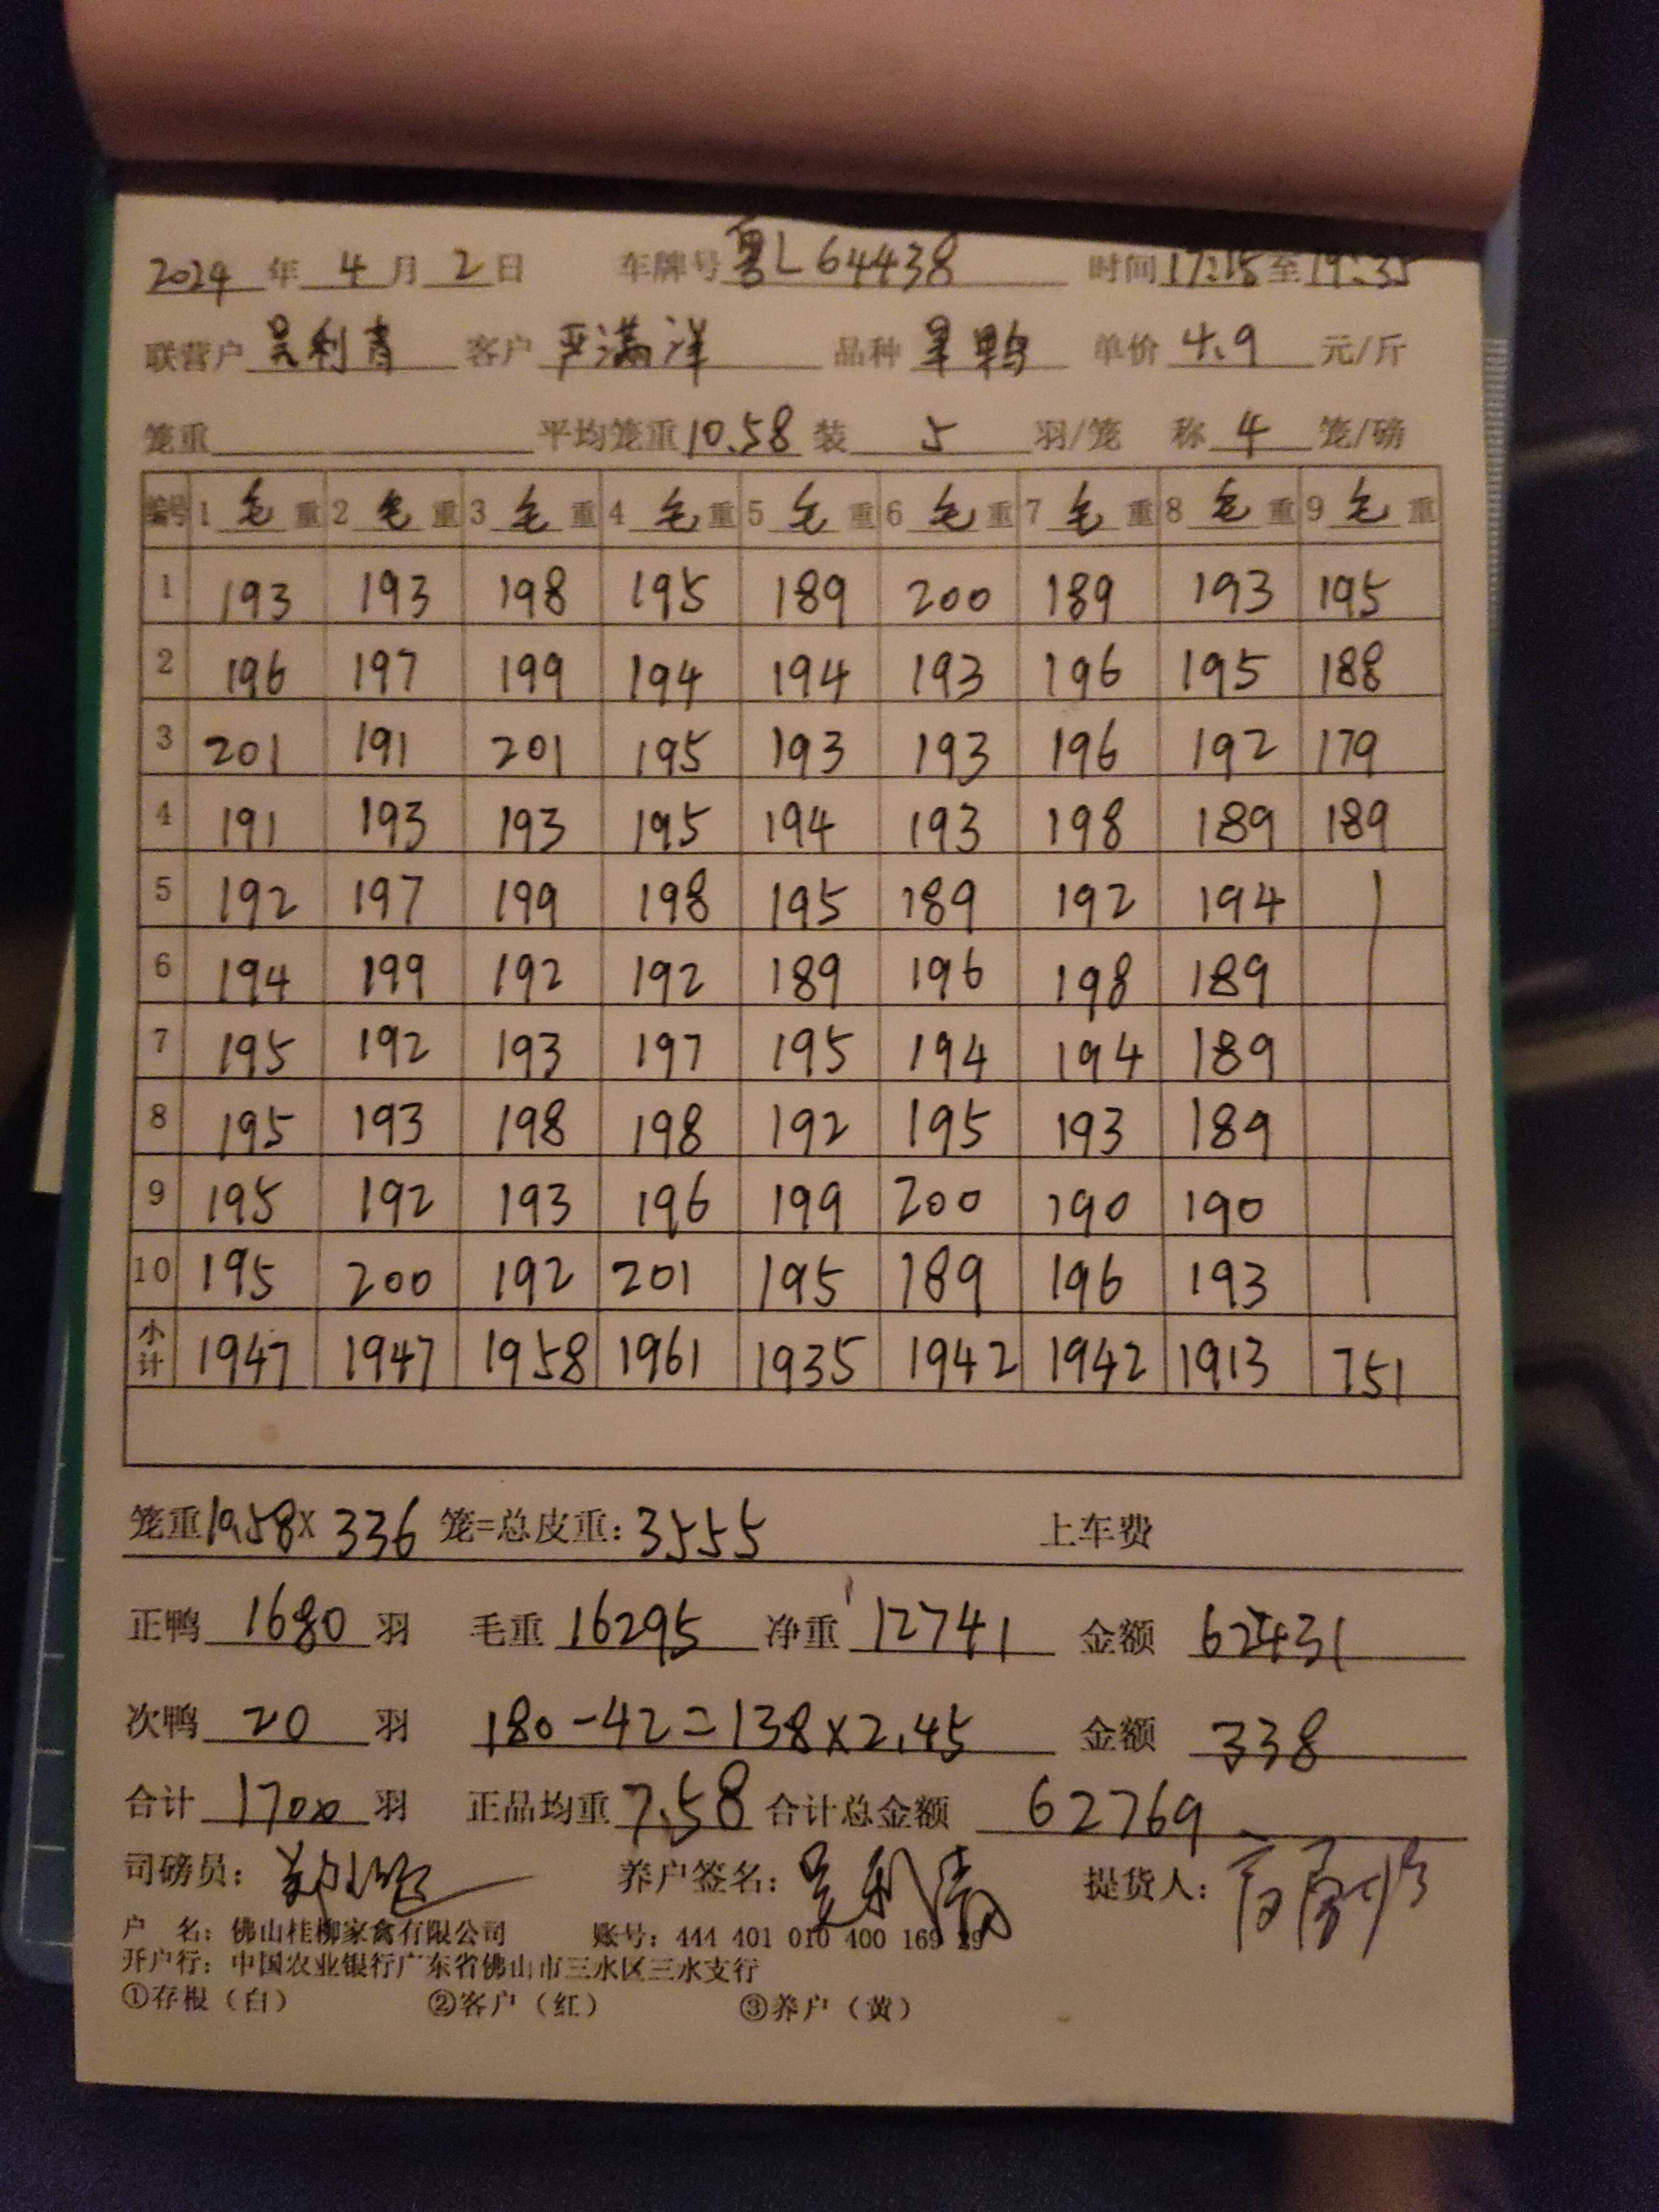 2024 年 4 月 2 日 车牌号 粤L64438 时间 17:15 至 19:35
联营户 吴利青 客户 严满洋 品种 单价 4.9 元/斤
笼重 平均笼重 10.58 装 5 羽/笼 称 4 笼/磅
编号 1 毛 重 2 毛 重 3 毛 重 4 毛 重 5 毛 重 6 毛 重 7 毛 重 8 毛 重 9 毛 重
1 193 193 198 195 189 200 189 193 195
2 196 197 199 194 194 193 196 195 188
3 201 191 201 195 193 193 196 192 179
4 191 193 193 195 194 193 198 189 189
5 192 197 199 198 195 189 192 194
6 194 199 192 192 189 196 198 189
7 195 192 193 197 195 194 194 189
8 195 193 198 198 192 195 193 189
9 195 192 193 196 199 200 190 190
10 195 200 192 201 195 189 196 193
小计 1947 1947 1958 1961 1935 1942 1942 1913 751
笼重 10.58 X 336 笼=总皮重: 3555 上车费
正鸭 1680 羽 毛重 16295 净重 12741 金额 62431
次鸭 20 羽 180-42=138×2.45 金额 338
合计 1700 羽 正品均重 7.58 合计总金额 62769
司磅员: 养户签名: 吴利青 提货人:
户 名: 佛山桂柳家禽有限公司 账号: 444 401 010 400 169 29
开户行: 中国农业银行广东省佛山市三水区三水支行
①存根（白） ②客户（红） ③养户（黄）